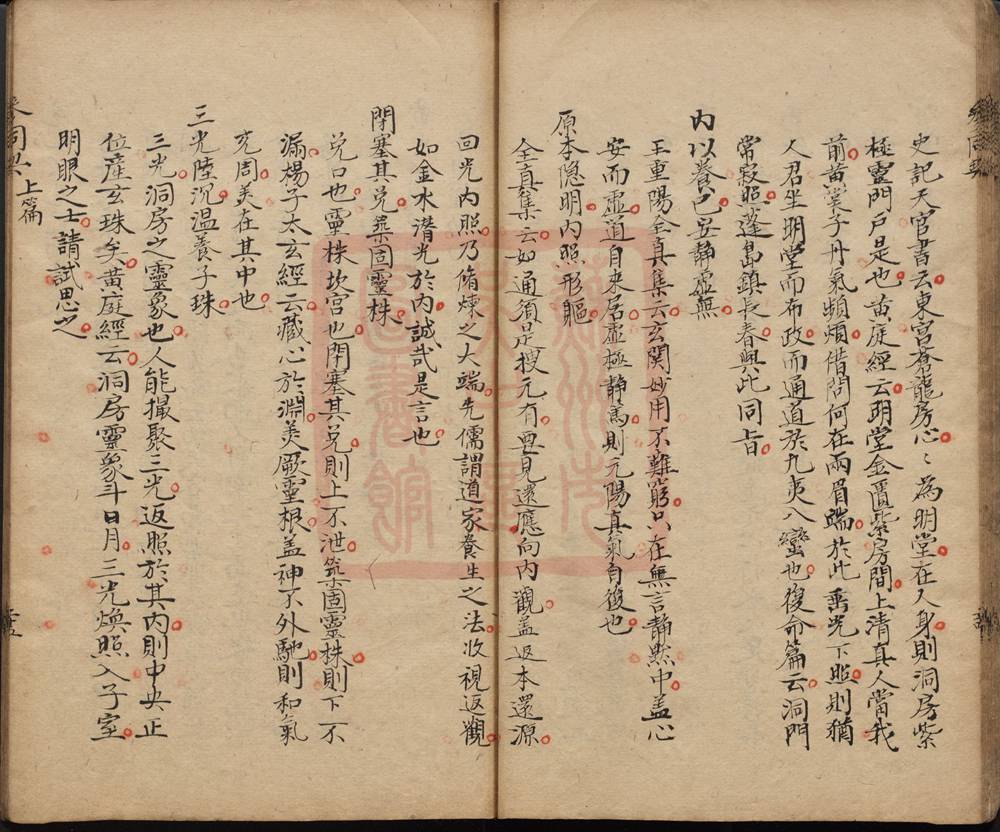 史記天官書云東宮蒼龍房心〻為明堂在人身則洞房紫
極靈門戶是也黃庭經云明堂金匱紫房間上清真人當我
前黃堂子丹氣頻煩借問何在兩眉端於此垂光下照則猶
人君坐明堂而布政而通道於九夷八蠻也復命篇云洞門
常寂照蓬島鎮長春與此同旨
內以養己安靜虛無
王重陽全真集云玄関妙用不難窮只在無言靜默中盖心
安而虛道自來居虛極靜篤則元陽真氣自復也
原本隐明內照形軀
全真集云如通須是搜元有毋見還應向內觀盖返本還源
回光內照乃脩煉之大端先儒謂道家養生之法收視返觀
如金水潛光於內誠哉是言也
閉塞其兌築固靈株
兌口也靈株坎宮也閉塞其兌則上不泄築固靈株則下不
漏楊子太玄經云藏心於淵美厥靈根盖神不外馳則和氣
充周美在其中也
三光陸沉溫養子珠
三光洞房之靈象也人能撮聚三光返照於其內則中央正
位産玄珠矣黃庭經云洞房靈象斗日月三光煥照入子室
明眼之士請試思之
參同契 上篇